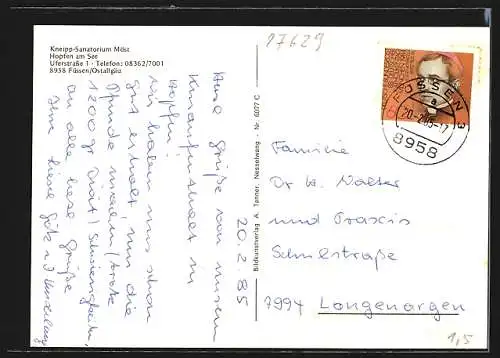 Kneipp-Sanatorium Möst
Hopfen am See
Uferstraße 1 · Telefon: 08362/7001
8958 Füssen/Ostallgäu
17629
20.2.85
Herzl. Grüße von unserem
Kneippaufenthalt in
Hopfen.
Wir haben uns schon
gut erholt, nur die
Pfunde purzeln (trotz
1200 gr. Diät)
an alle liebe Grüße
Bildkunstverlag A. Tanner, Nesselwang · Nr. 6077 C
FÜSSEN 3
a
20.-2.85-17
8958
Familie
Dr. W. Walter
und Praxis
Schulstraße
7994 Langenargen
1,5